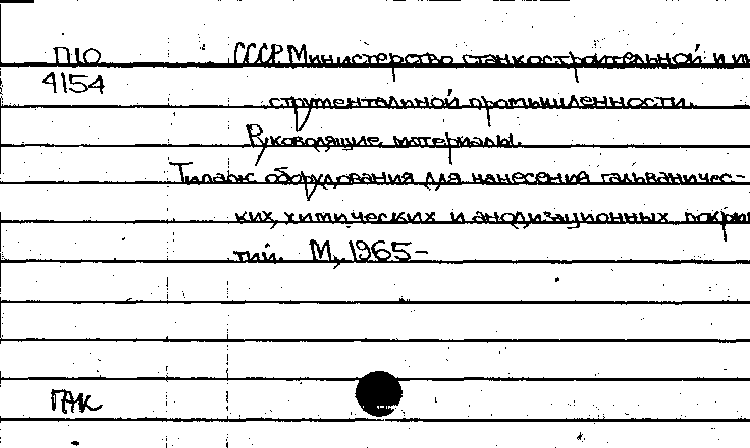 П10 СССР. Министерство станкостроительной и ин
4154 струментальной промышленности.
Руководящие материалы.
Типаж оборудования для нанесения гальваничес-
ких, химических и анодизационных покры
тий. М., 1965-
ГАК